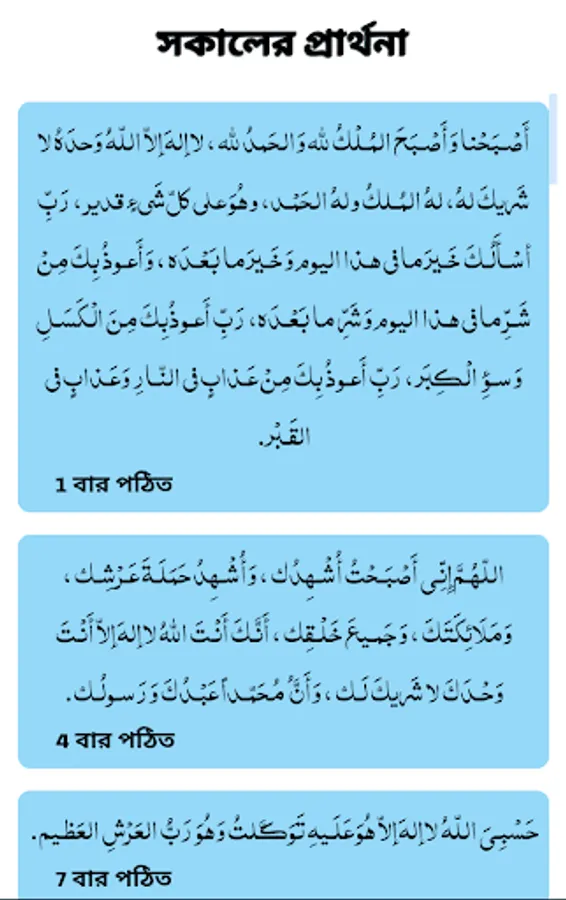 সকালের প্রার্থনা
أَصْبَحْنا وَأَصْبَحَ المُلْكُ لله وَالحَمدُ لله ، لا إلهَ إلاّ اللّهُ وَحدَهُ لا
شَريكَ لهُ، لهُ المُلكُ ولهُ الحَمْد، وهُوَ على كلّ شَيءٍ قدير ، رَبِّ
أسْأَلُكَ خَيرَ ما في هذا اليوم وَخَيرَ ما بَعْدَه ، وَأَعوذُ بِكَ مِنْ
شَرِّ ما في هذا اليوم وَشَرِّ ما بَعْدَه، رَبِّ أَعوذُبِكَ مِنَ الْكَسَلِ
وَسوءِ الْكِبَر ، رَبِّ أَعوذُ بِكَ مِنْ عَذابٍ في النّارِ وَعَذابٍ في
القَبْر.
1 বার পঠিত
اللّهُمَّ إِنِّي أَصْبَحْتُ أُشْهِدُك ، وَأُشْهِدُ حَمَلَةَ عَرْشِك ،
وَمَلَائِكَتَكَ ، وَجَميعَ خَلْقِك ، أَنَّكَ أَنْتَ اللهُ لا إلهَ إلاّ أَنْتَ
وَحْدَكَ لا شَريكَ لَك ، وَأَنَّ مُحَمّداً عَبْدُكَ وَرَسولُك.
4 বার পঠিত
حَسْبِيَ اللّهُ لا إلهَ إلاّ هُوَ عَلَيهِ تَوَكَّلتُ وَهُوَ رَبُّ العَرْشِ العَظيم.
7 বার পঠিত